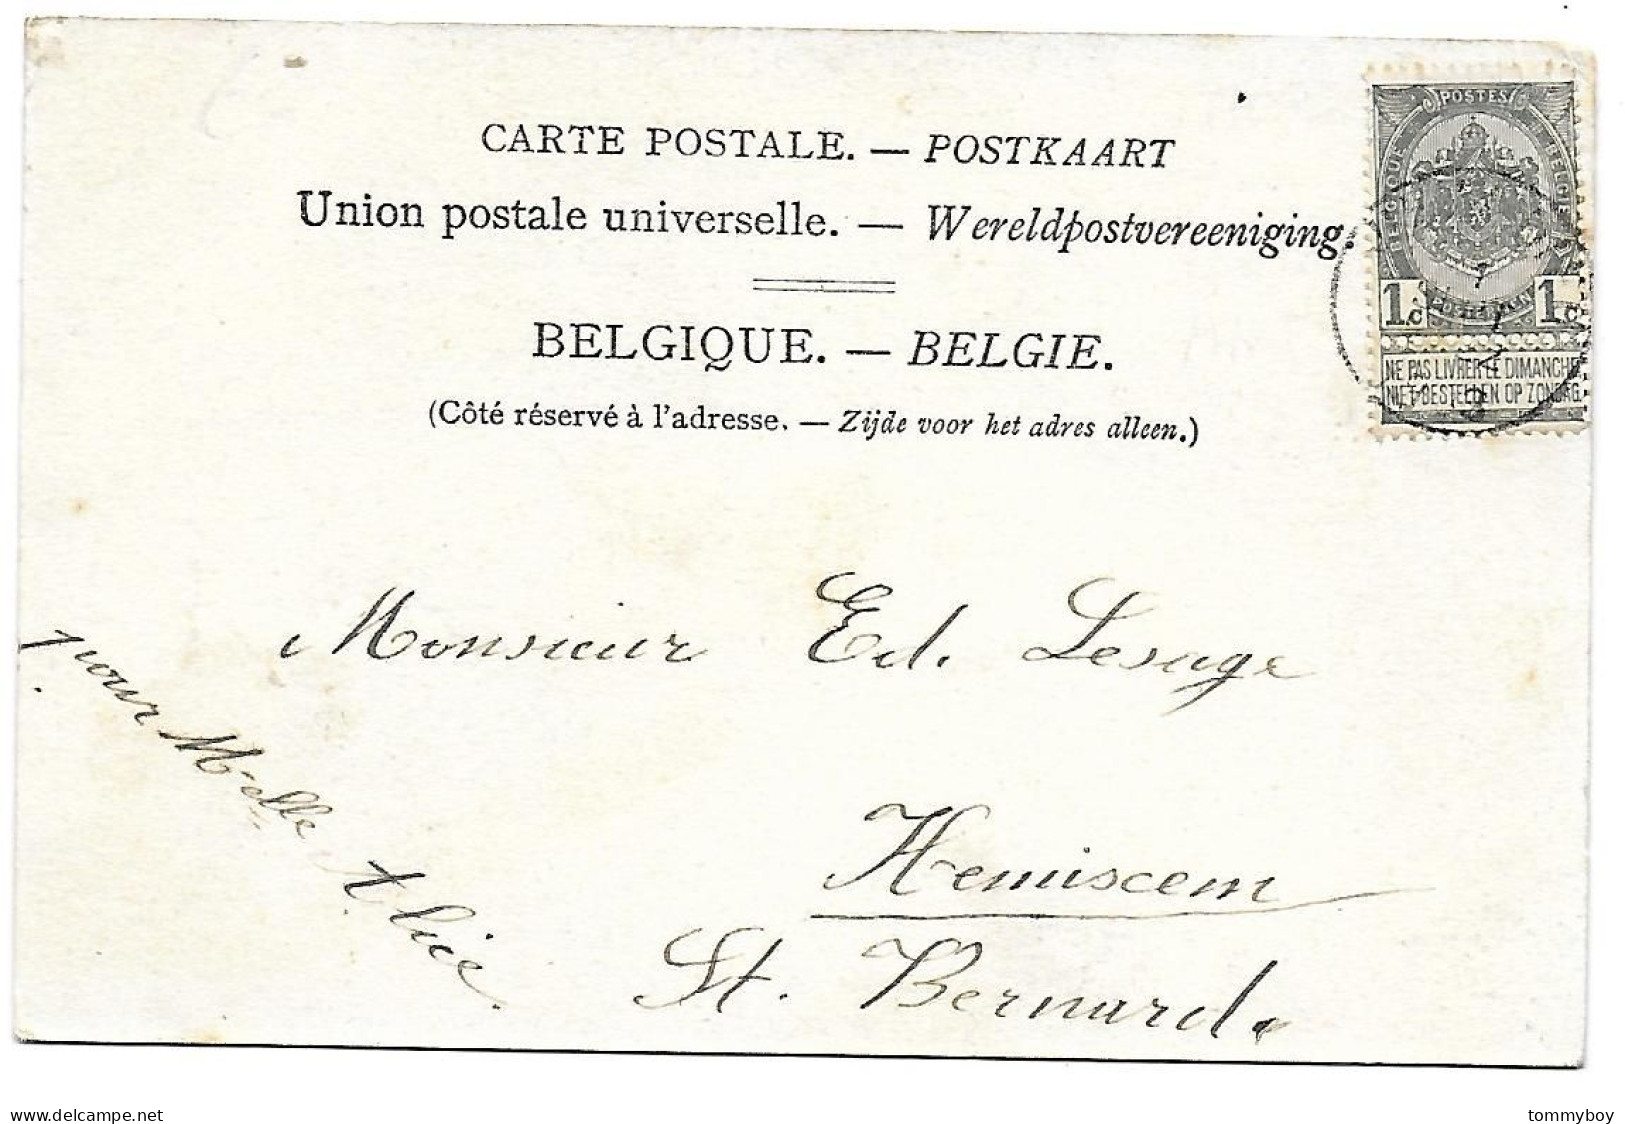 CARTE POSTALE. — POSTKAART
Union postale universelle. — Wereldpostvereeniging.
BELGIQUE. — BELGIE.
(Côté réservé à l'adresse. — Zijde voor het adres alleen.)
POSTES
BELGIQUE
BELGIE
1c 1c
NE PAS LIVRER LE DIMANCHE
NIET BESTELLEN OP ZONDAG
Monsieur Ed. Lesage
Hemiscem
St. Bernard.
pour M.elle Alice.
delcampe.net
tommyboy